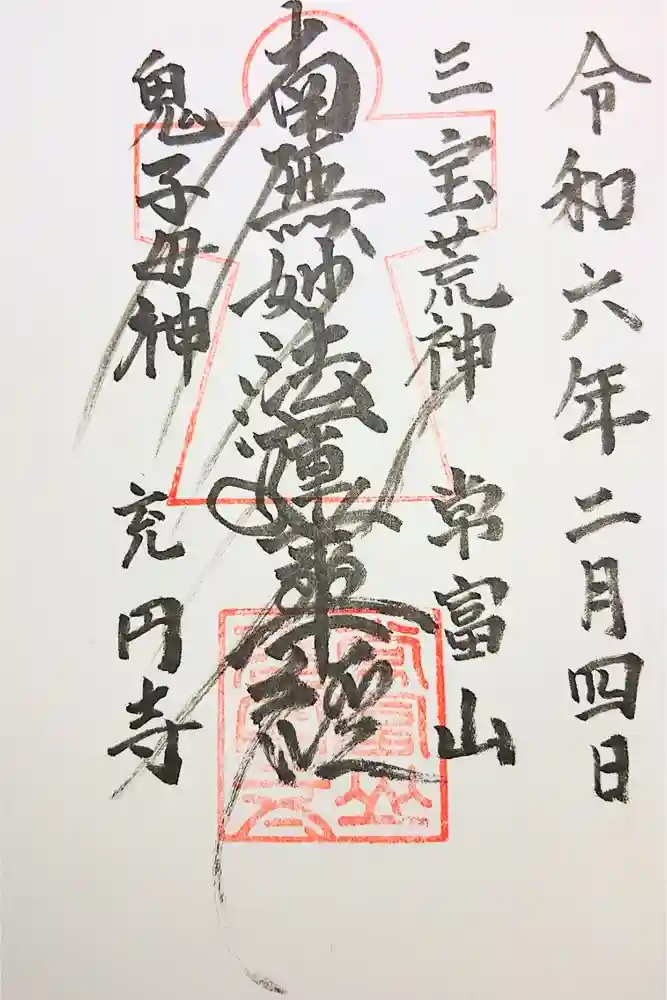 令和六年二月四日
三宝荒神 常富山
南無妙法蓮華経
鬼子母神 充円寺